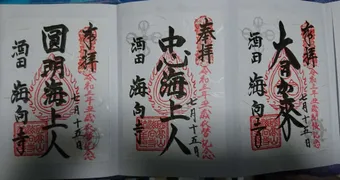 奉拝
大日如來
七月十五日
酒田 海向寺
奉拝
中心海上人
七月十五日
酒田 海向寺
奉拝
圓明海上人
七月十五日
酒田 海向寺